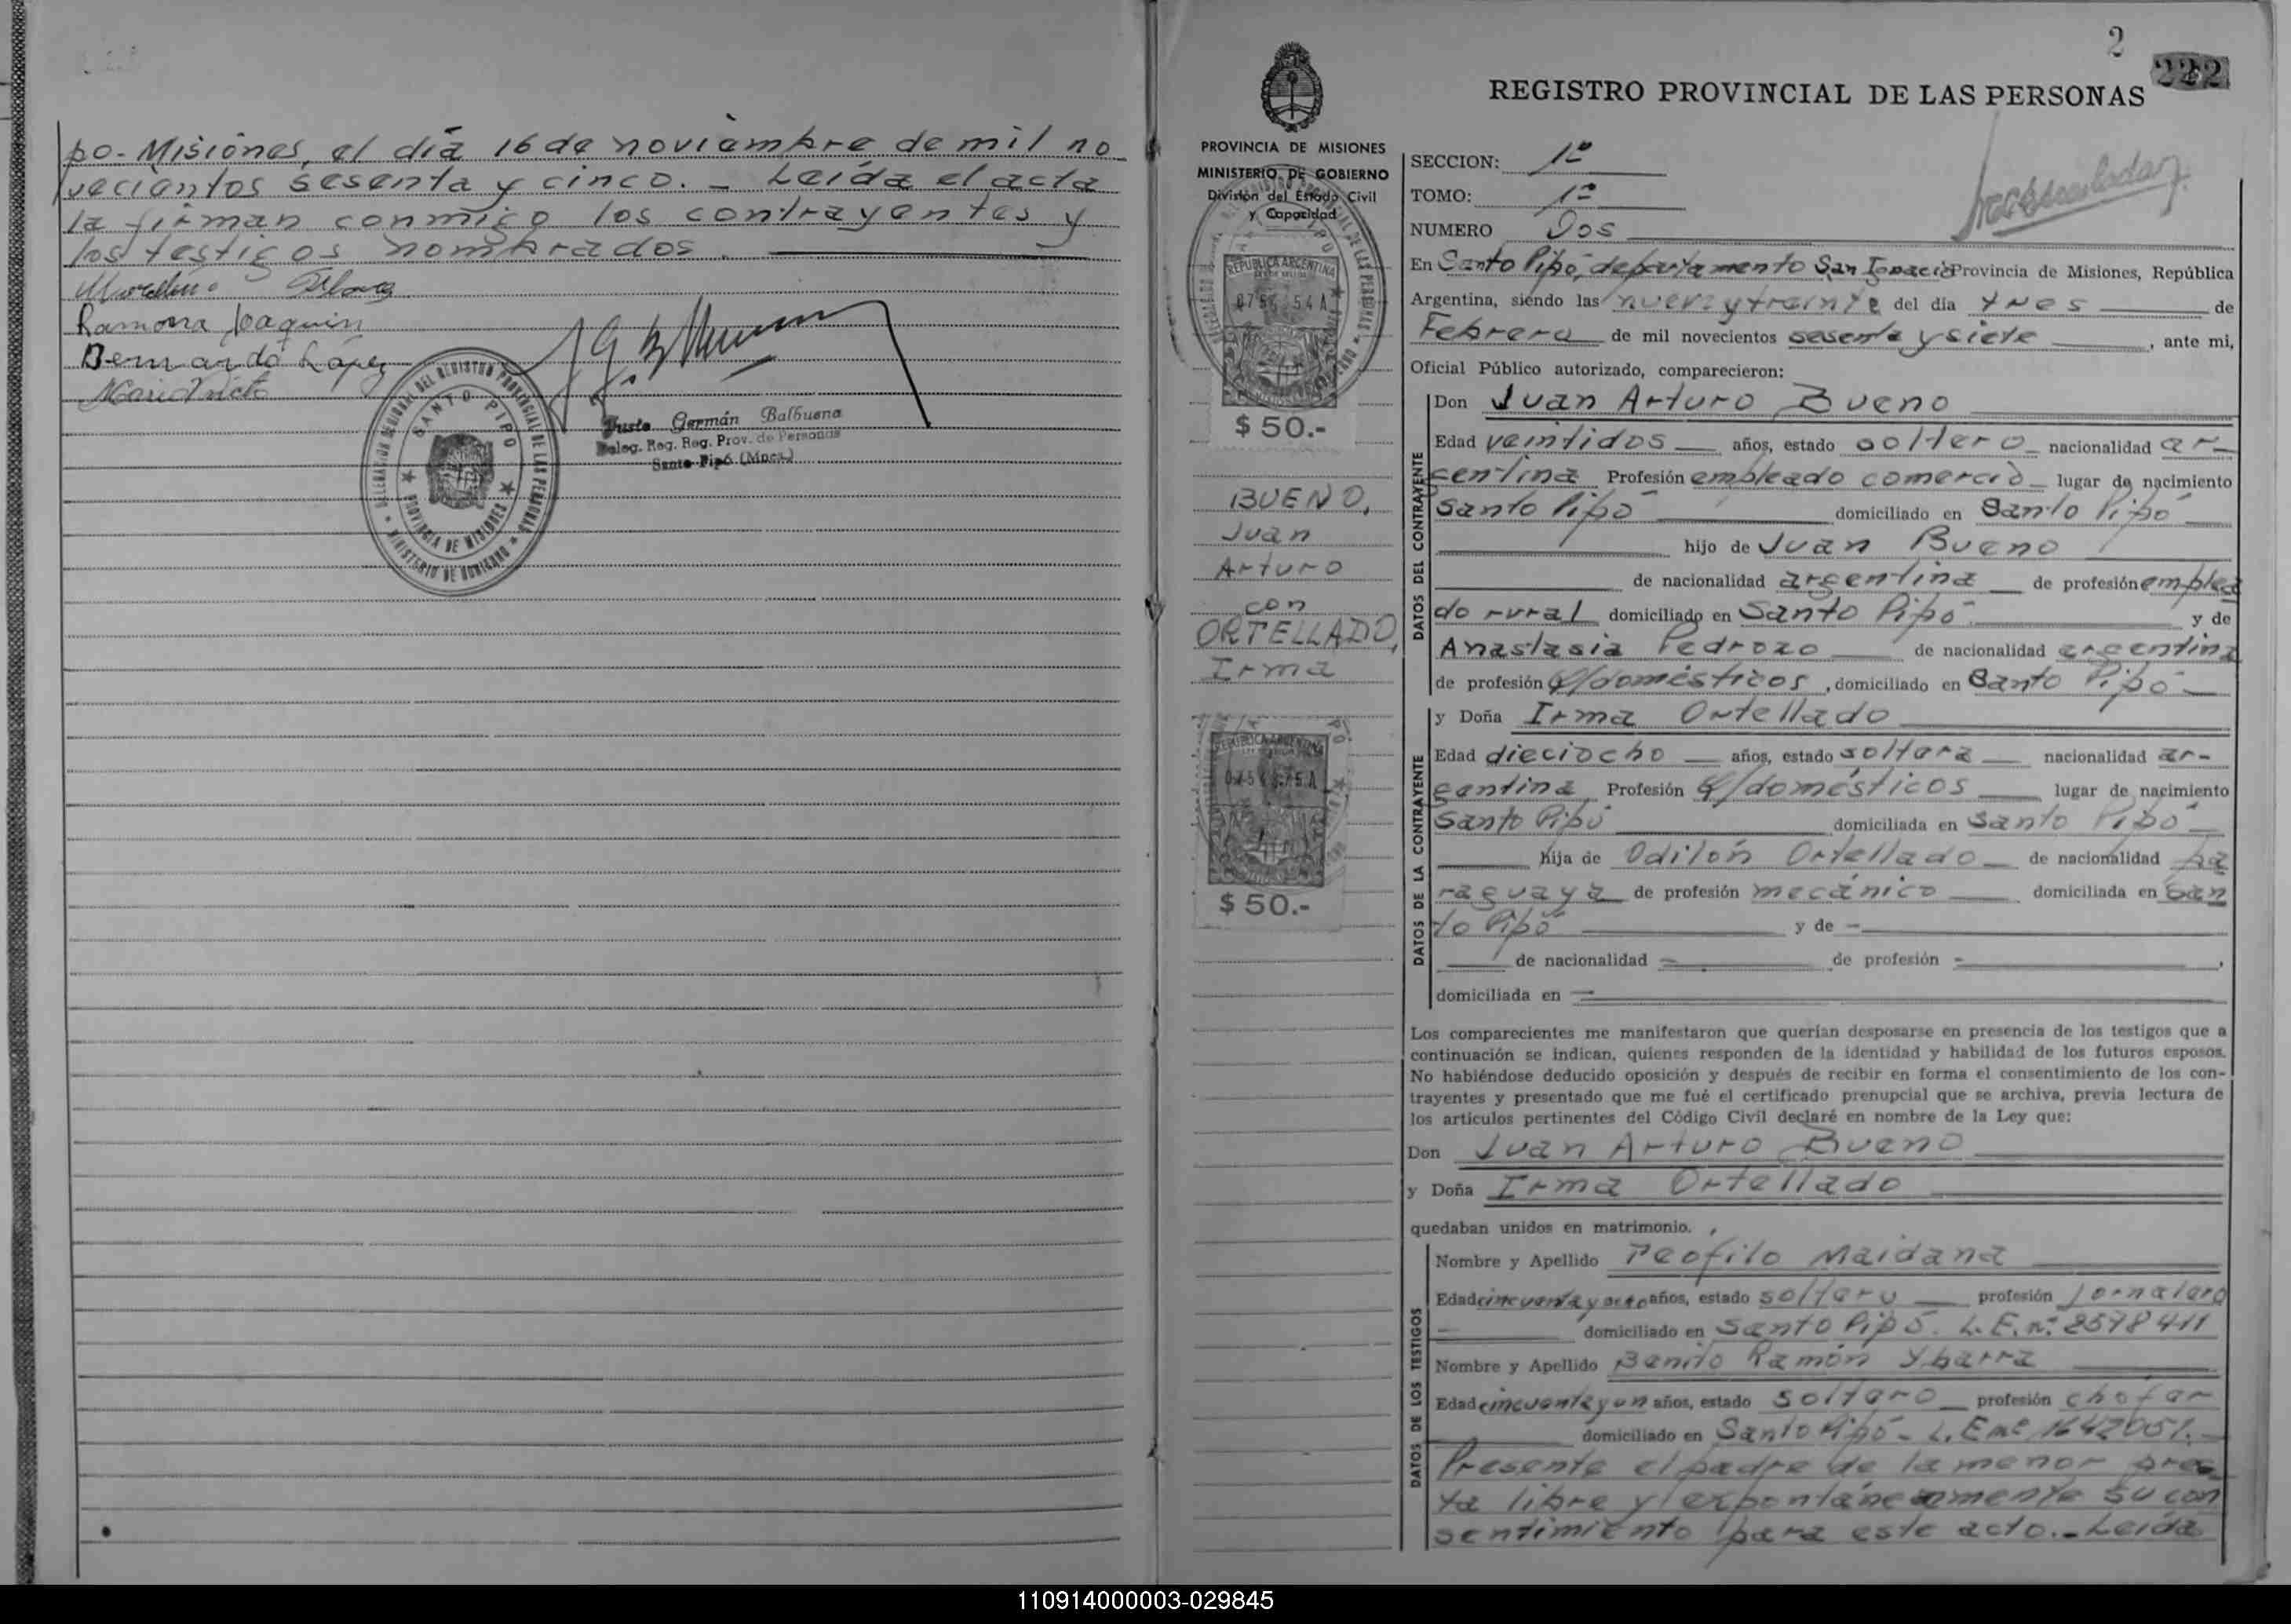 po-Misiones, el día 16 de noviembre de mil no
vecientos sesenta y cinco. - Leída el acta
la firman conmigo los contrayentes y
los testigos nombrados.
Ramona Joaquin
Bernardo López
DELEGACION REGIONAL DEL REGISTRO PROVINCIAL DE LAS PERSONAS
SANTO PIPO
PROVINCIA DE MISIONES
MINISTERIO DE GOBIERNO
Justo Germán Balbuena
Deleg. Reg. Reg. Prov. de Personas
Santo Pipó (Mnes.)
2
222
REGISTRO PROVINCIAL DE LAS PERSONAS
PROVINCIA DE MISIONES
MINISTERIO DE GOBIERNO
División del Estado Civil
y Capacidad
REPUBLICA ARGENTINA
$ 50.-
BUENO,
Juan
Arturo
con
ORTELLADO,
Irma
REPUBLICA ARGENTINA
$ 50.-
SECCION: 1º
TOMO: 1º
NUMERO Dos
En Santo Pipó, departamento San Ignacio Provincia de Misiones, República
Argentina, siendo las nueve y treinta del día tres de
Febrero de mil novecientos sesenta y siete, ante mi,
Oficial Público autorizado, comparecieron:
DATOS DEL CONTRAYENTE
Don Juan Arturo Bueno
Edad veintidos años, estado soltero nacionalidad ar-
gentina Profesión empleado comercio lugar de nacimiento
Santo Pipó domiciliado en Santo Pipó
hijo de Juan Bueno
de nacionalidad argentina de profesión emplea
do rural domiciliado en Santo Pipó y de
Anastasia Pedrozo de nacionalidad argentina
de profesión q/domésticos, domiciliado en Santo Pipó
DATOS DE LA CONTRAYENTE
y Doña Irma Ortellado
Edad dieciocho años, estado soltera nacionalidad ar-
gentina Profesión q/domésticos lugar de nacimiento
Santo Pipó domiciliada en Santo Pipó
hija de Odilón Ortellado de nacionalidad pa
raguaya de profesión mecánico domiciliada en San
to Pipó y de -
de nacionalidad - de profesión - ,
domiciliada en -
Los comparecientes me manifestaron que querían desposarse en presencia de los testigos que a
continuación se indican, quienes responden de la identidad y habilidad de los futuros esposos.
No habiéndose deducido oposición y después de recibir en forma el consentimiento de los con-
trayentes y presentado que me fué el certificado prenupcial que se archiva, previa lectura de
los artículos pertinentes del Código Civil declaré en nombre de la Ley que:
Don Juan Arturo Bueno
y Doña Irma Ortellado
quedaban unidos en matrimonio.
DATOS DE LOS TESTIGOS
Nombre y Apellido Teofilo Maidana
Edad cincuenta y ocho años, estado soltero profesión jornalero
domiciliado en Santo Pipó. L.E. nº 2578411
Nombre y Apellido Benito Ramón Ybarra
Edad cincuenta y un años, estado soltero profesión chofer
domiciliado en Santo Pipó - L.E nº 1642051.
Presente el padre de la menor pres
ta libre y expontáneamente su con
sentimiento para este acto.- Leída
110914000003-029845